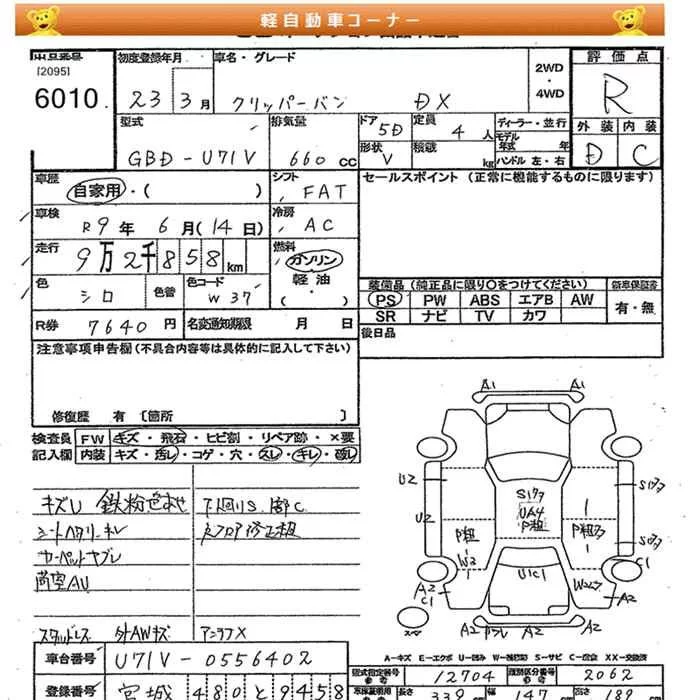 軽自動車コーナー
出品番号
[2095]
6010
初度登録年月
23 3 月
車名・グレード
クリッパーバン DX
2WD
・
4WD
評価点
R
外装 内装
D C
型式
GBD-U71V
排気量
660 cc
ドア
5D
定員
4 人
形状
V
積載
kg
ディーラー・並行
モデル
年式 年
ハンドル 左・右
車歴
自家用・( )
シフト
FAT
セールスポイント (正常に機能するものに限ります)
車検
R9年 6月(14日)
冷房
AC
走行
9万2千858km
燃料
ガソリン
軽油
・( )
色
シロ
色替
色コード
W37
装備品 (純正品に限り○をつけてください)
新車保証書
PS PW ABS エアB AW
有・無
SR ナビ TV カワ
R券 7640円
名変通知期限 月 日
後日品
注意事項申告欄(不具合内容等は具体的に記入して下さい)
修復歴 有 [箇所 ]
検査員 FW キズ・飛石・ヒビ割・リペア跡・×要
記入欄 内装 キズ・汚レ・コゲ・穴・スレ・キレ・破レ
キズU 鉄粉
下回りS
シートヘタリ
フロア修正
カーペットヤブレ
AU
スタッドレス 外AWキズ アンテナX
A1 A1
U2
U2
S177
UA4
P粗
S177
S177
P粗
W2
U1C1
A2
C1
A2
A2 A2 A2
A-キズ E-エクボ U-凹み W-補修跡 S-サビ C-腐食 XX-交換済
車台番号 U71V-0556402
型式指定番号 12704
類別区分番号 2062
登録番号 宮城 480 と 9458
長さ 339
幅 147
高さ 189